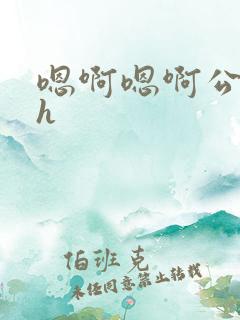 嗯啊嗯啊公
h
伯班克
未经同意禁止转载